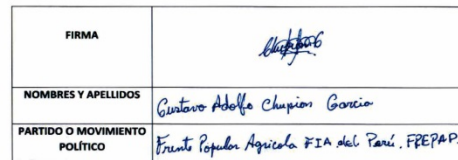 FIRMA
NOMBRES Y APELLIDOS Gustavo Adolfo Chupion Garcia
PARTIDO O MOVIMIENTO
POLÍTICO Frente Popular Agricola FIA del Perú. FREPAP.